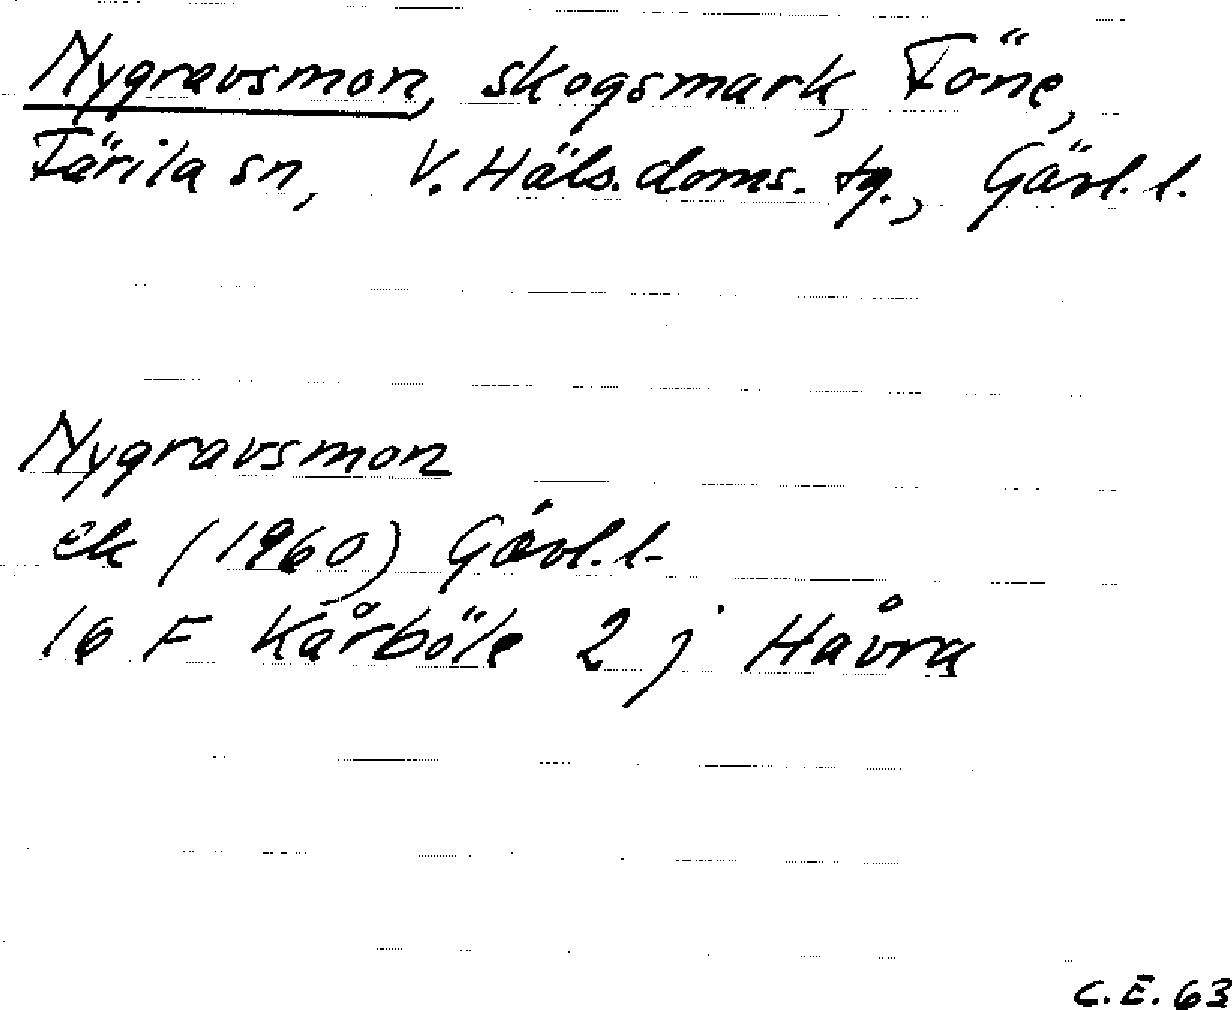 Nygravsmon, skogsmark, Föne,
Färila sn, V. Häls. doms. tg., Gävl. l.
Nygravsmon
ek (1960) Gävl. l.
16 F Kårböle 2 j Håvra
C.E. 63